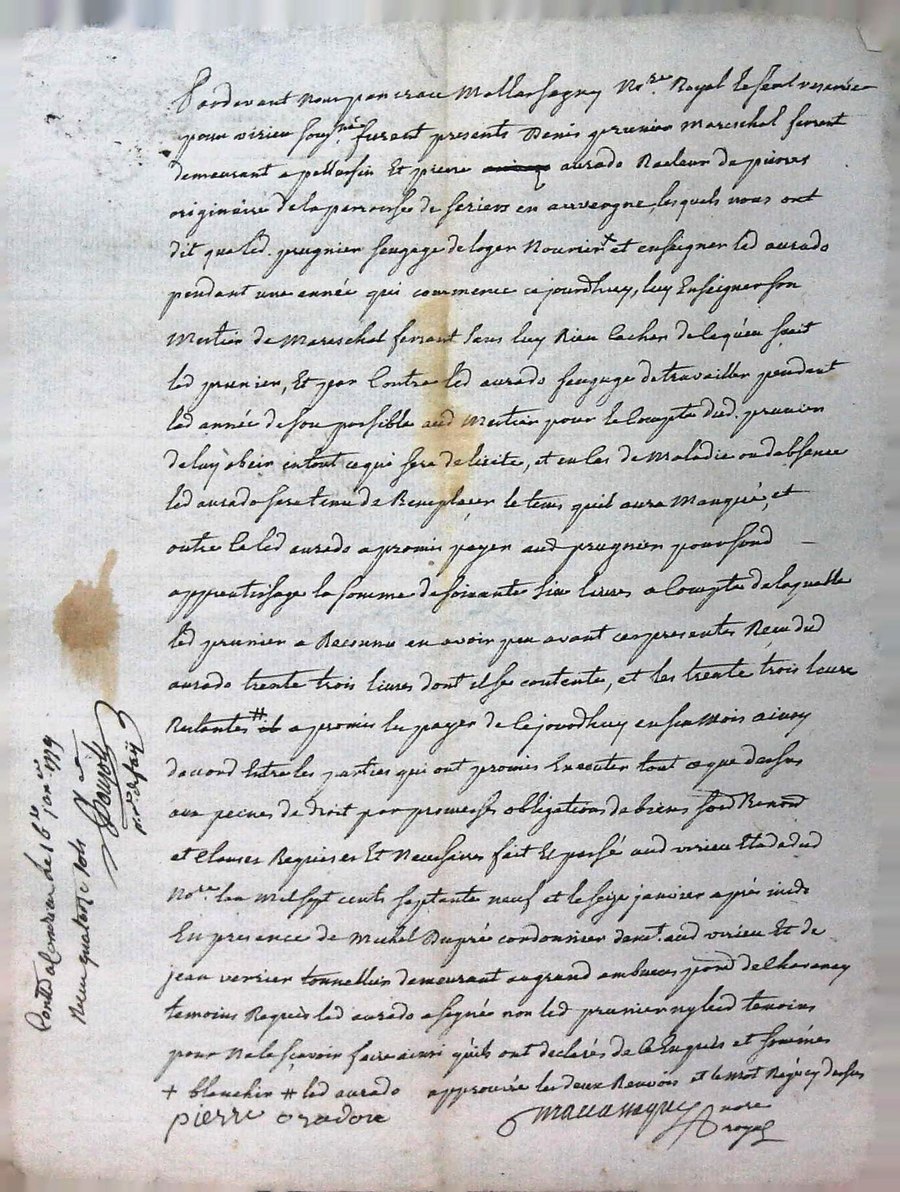 Pardevant nous pancrace Mallassagny No.re Royal et seul reservé
pour virieu sousné furent presents Denis prunier Mareschal ferrant
demeurant a pellussin Et pierre aurado Racleur de pierres
originaire de la parroisse de en auvergne, lesquels nous ont
dit que led. prugnier sengage de loger Nourrir + et enseigner led aurado
pendant une année qui commence cejourdhuy, luy Enseigner son
Mestier de Mareschal ferrant sans luy Rien cacher de laqueu scait
led prunier, Et par Contre led aurado sengage de travailler pendant
led année de son possible aud Mestier pour le Compte dud. prunier
de luy obeir entout ce qui sera delicite, et en cas de Maladie ou dabsence
led aurado sera tenu de Remplacer le tems quil aura Manqué, et
outre ce led aurado a promis payer aud prugnier pour sond
apprentissage la somme de soixante six livres a Compte de laquelle
led prunier a Reconnu en avoir peu avant ces presentes Recu dud
aurado trente trois livres dont il se contente, et les trente trois livre
Restantes # a promis les payer de cejourdhuy en six Mois ainsy
daccord Entre les parties qui ont promis Executer tout ce que dessus
aux peines de droit par promesses obligations de biens soud Renond
et clauses Requises Et Necessaires fait Et passé aud virieu Etude dud
No.re lan Mil sept cents septante neuf et le seize janvier après midi
En presence de Michel Dupré cordonnier demt. aud virieu Et de
jean verrier tonnellier demeurant au grand embuent parr.d de Chavaney
temoins Requis led aurado a signée non led prunier ny led temoins
pour Ne le scavoir faire ainsi quils ont declarés de ce Enquis et sommés
+ blanchir # led aurado approuvée les deux Renvois et le mot Requey dessus
pierre oradou
Mallassagny nore
royal
Contlé a Condrieu le 16 janer 1779
Recu quatorze sols